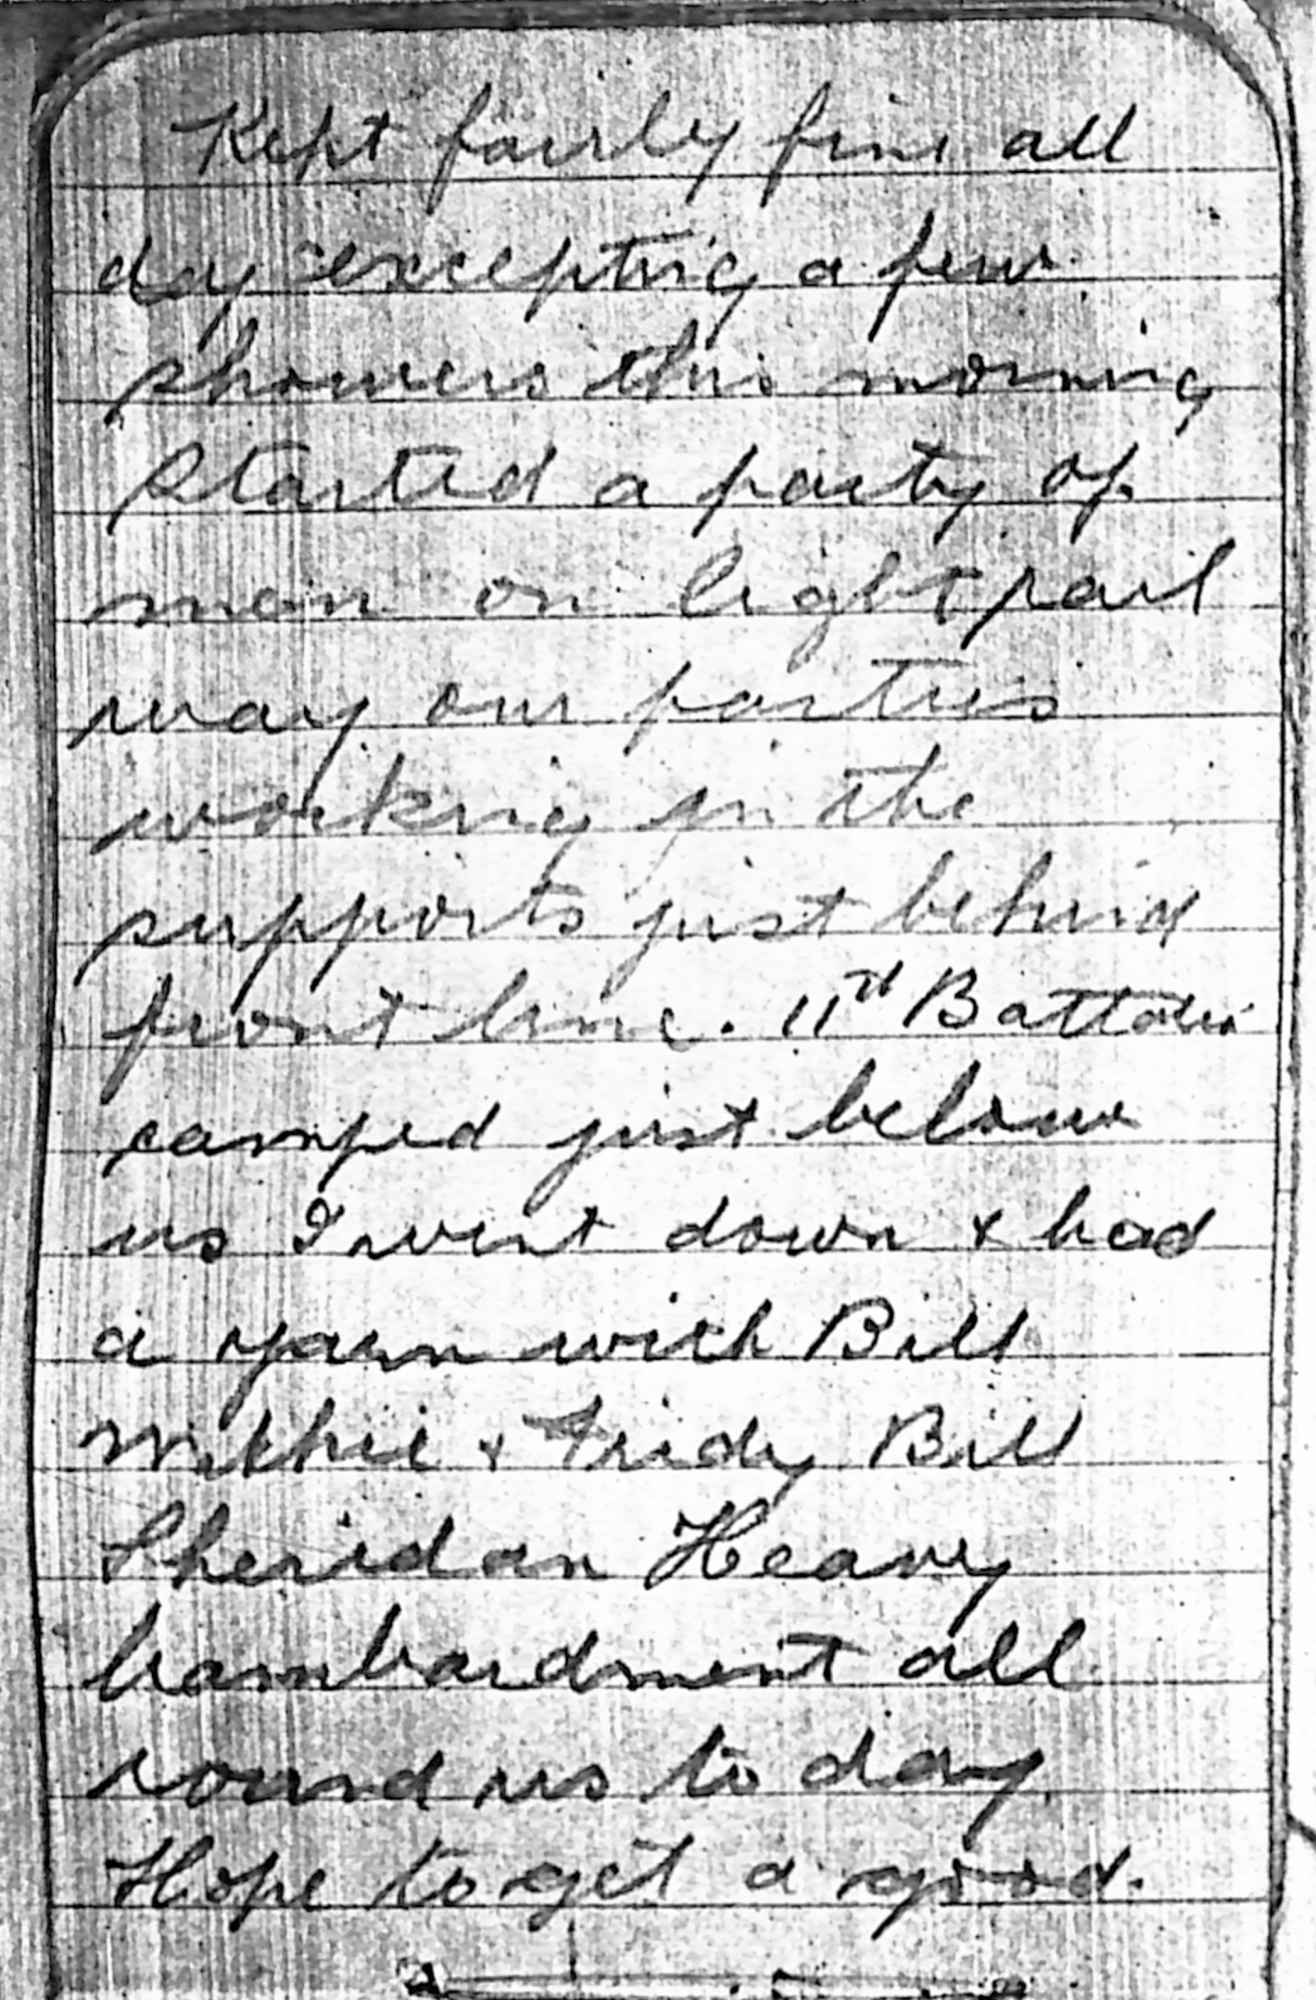 Kept fairly fine all
day excepting a few
showers this morning
started a party of
men on light rail
way our parties
working in the
supports just behind
front line. 11th Battalion
camped just below
us I went down & had
a yarn with Bill
& Bill
Sheridan Heavy
bombardment all
round us to day
Hope to get a good.